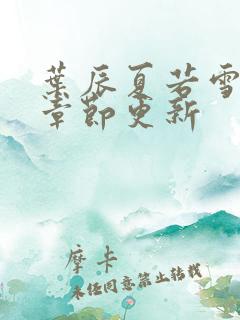 葉辰夏若雪
章節更新
摩卡
未经同意禁止转载